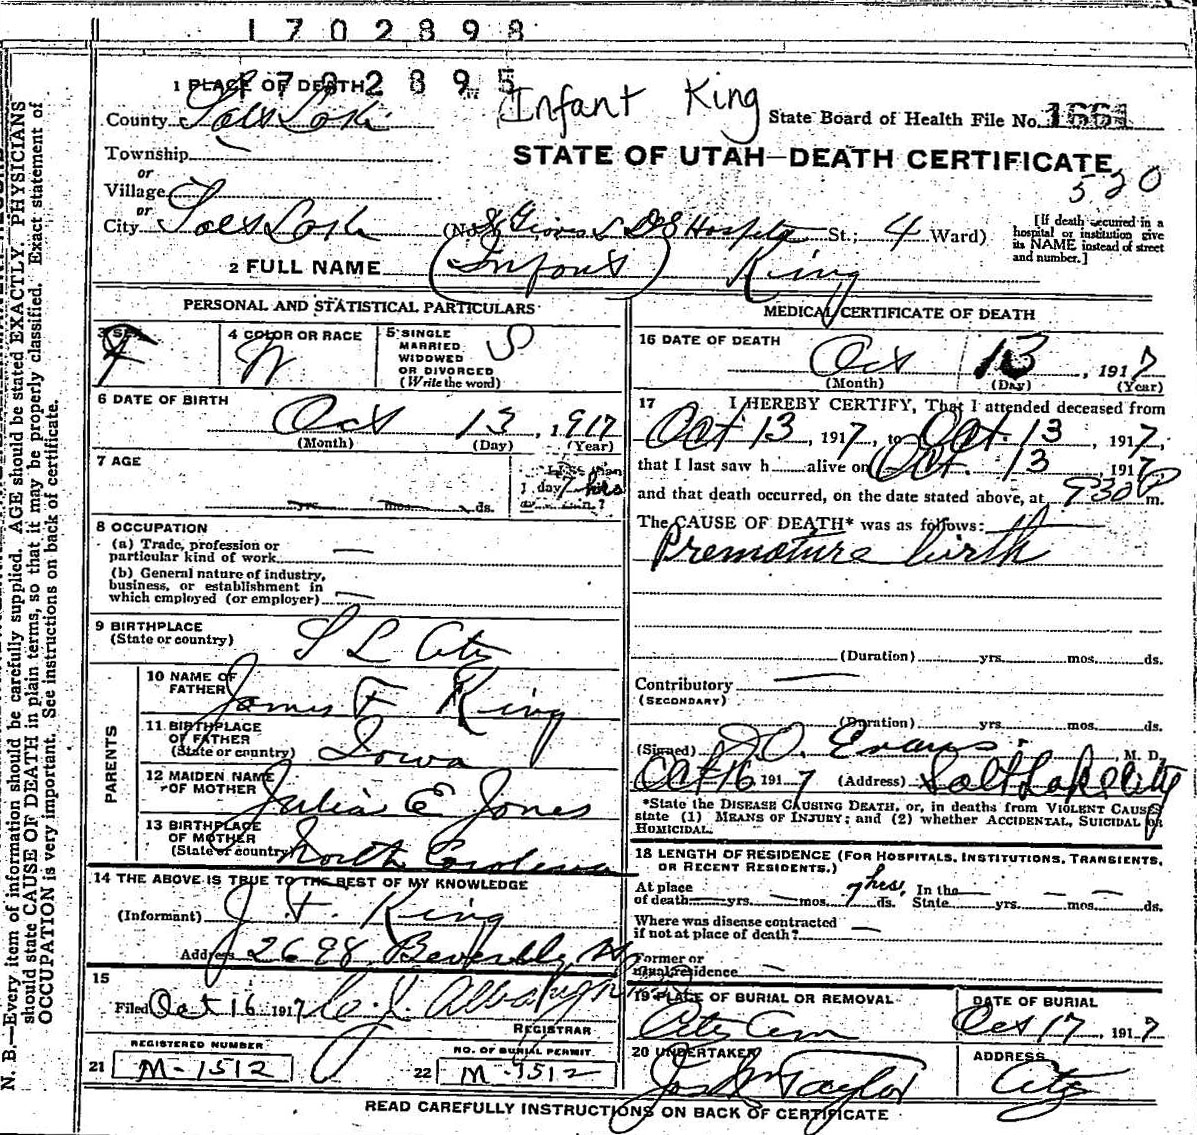 1702898
1 PLACE OF DEATH 1702895
Infant King
County Salt Lake
State Board of Health File No. 1661
Township
or
STATE OF UTAH—DEATH CERTIFICATE
520
Village
or
City Salt Lake (No. L D S Hospital St.; 4 Ward)
[If death occurred in a hospital or institution give its NAME instead of street and number.]
2 FULL NAME (Infant) King
PERSONAL AND STATISTICAL PARTICULARS
3 SEX F
4 COLOR OR RACE W
5 SINGLE MARRIED WIDOWED OR DIVORCED (Write the word) S
6 DATE OF BIRTH Oct 13, 1917
(Month) (Day) (Year)
7 AGE yrs. mos. ds.
Less than 1 day 7 hrs
8 OCCUPATION
(a) Trade, profession or
particular kind of work
(b) General nature of industry,
business, or establishment in
which employed (or employer)
9 BIRTHPLACE
(State or country) S L City
PARENTS
10 NAME OF FATHER James F King
11 BIRTHPLACE OF FATHER (State or country) Iowa
12 MAIDEN NAME OF MOTHER Julia E Jones
13 BIRTHPLACE OF MOTHER (State or country) North Carolina
14 THE ABOVE IS TRUE TO THE BEST OF MY KNOWLEDGE
(Informant) J. F. King
Address 2698 Beverly
15
Filed Oct 16 1917 Albaugh
REGISTRAR
REGISTERED NUMBER
21 M-1512
NO. OF BURIAL PERMIT
22 M-1512
MEDICAL CERTIFICATE OF DEATH
16 DATE OF DEATH
Oct 13, 1917
(Month) (Day) (Year)
17 I HEREBY CERTIFY, That I attended deceased from
Oct 13, 1917, to Oct. 13, 1917,
that I last saw h alive on Oct. 13, 1917
and that death occurred, on the date stated above, at 930 P m.
The CAUSE OF DEATH* was as follows:
Premature birth
(Duration) yrs. mos. ds.
Contributory
(SECONDARY)
(Duration) yrs. mos. ds.
(Signed) Evans, M. D.
Oct 16 1917 (Address) Salt Lake City
*State the DISEASE CAUSING DEATH, or, in deaths from VIOLENT CAUSES
state (1) MEANS OF INJURY; and (2) whether ACCIDENTAL, SUICIDAL or
HOMICIDAL.
18 LENGTH OF RESIDENCE (FOR HOSPITALS, INSTITUTIONS, TRANSIENTS,
OR RECENT RESIDENTS.)
At place of death yrs. mos. 7 hrs. ds. In the State yrs. mos. ds.
Where was disease contracted
if not at place of death?
Former or
usual residence
19 PLACE OF BURIAL OR REMOVAL
City Cem
DATE OF BURIAL
Oct 17, 1917
20 UNDERTAKER
Taylor
ADDRESS
City
READ CAREFULLY INSTRUCTIONS ON BACK OF CERTIFICATE
N. B.—Every item of information should be carefully supplied. AGE should be stated EXACTLY. PHYSICIANS
should state CAUSE OF DEATH in plain terms, so that it may be properly classified. Exact statement of
OCCUPATION is very important. See instructions on back of certificate.